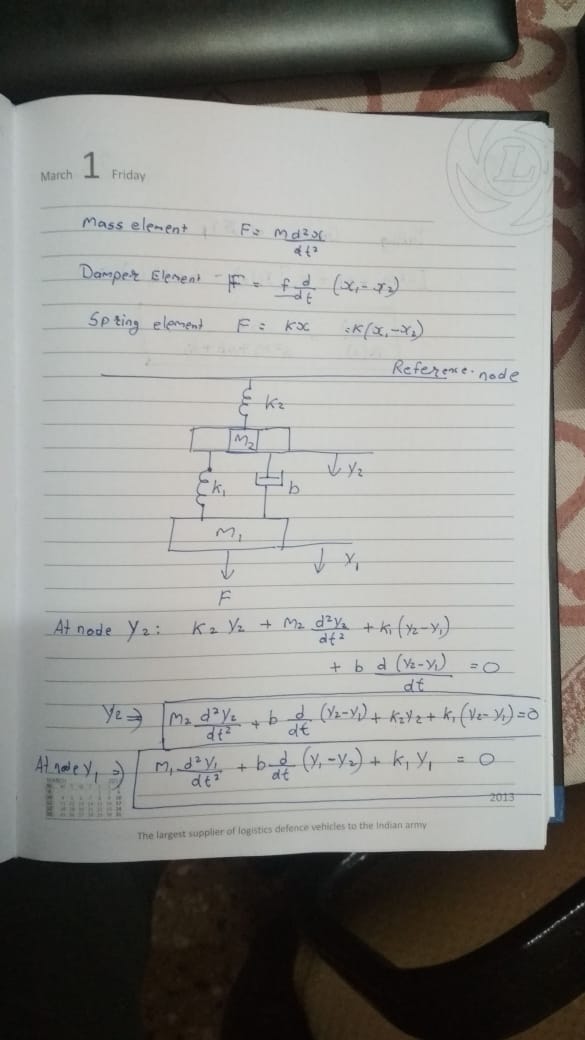 March 1 Friday
L
Mass element F = M d²x/dt²
Damper Element F = f d/dt (x₁-x₂)
Spring element F = Kx = K(x₁-x₂)
Reference node
K₂
M₂
Y₂
K₁ b
M₁
Y₁
F
At node Y₂: K₂ Y₂ + M₂ d²Y₂/dt² + K₁ (Y₂-Y₁)
+ b d (Y₂-Y₁)/dt = 0
Y₂ ⇒ M₂ d²Y₂/dt² + b d/dt (Y₂-Y₁) + K₂Y₂ + K₁ (Y₂-Y₁) = 0
At node Y₁ ⇒ M₁ d²Y₁/dt² + b d/dt (Y₁-Y₂) + K₁ Y₁ = 0
MARCH
2013
The largest supplier of logistics defence vehicles to the Indian army